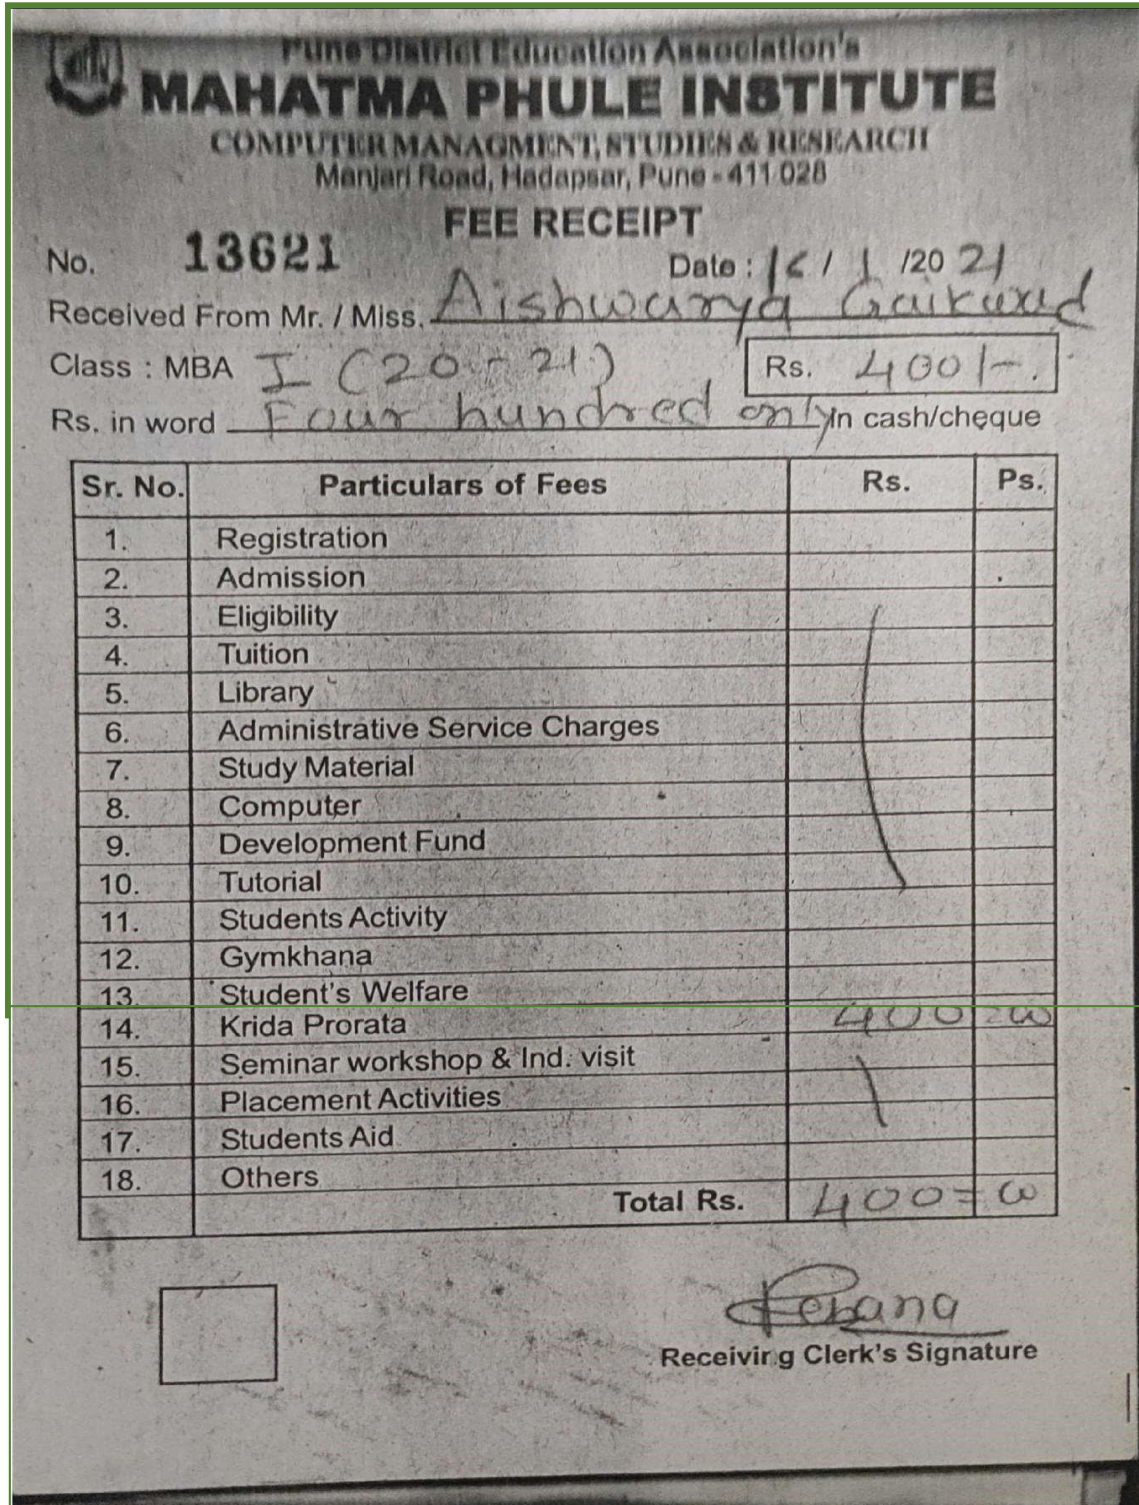 Pune District Education Association's
MAHATMA PHULE INSTITUTE
COMPUTER MANAGMENT, STUDIES & RESEARCH
Manjari Road, Hadapsar, Pune - 411 028
FEE RECEIPT
No. 13621
Date : / 1 /20 21
Received From Mr. / Miss. Aishwarya Gaikwad
Class : MBA I (20-21) Rs. 400/-.
Rs. in word Four hundred only In cash/cheque
Sr. No. Particulars of Fees Rs. Ps.
1. Registration
2. Admission
3. Eligibility
4. Tuition
5. Library
6. Administrative Service Charges
7. Study Material
8. Computer
9. Development Fund
10. Tutorial
11. Students Activity
12. Gymkhana
13. Student's Welfare
14. Krida Prorata 400=00
15. Seminar workshop & Ind. visit
16. Placement Activities
17. Students Aid
18. Others
Total Rs. 400=00
Receiving Clerk's Signature